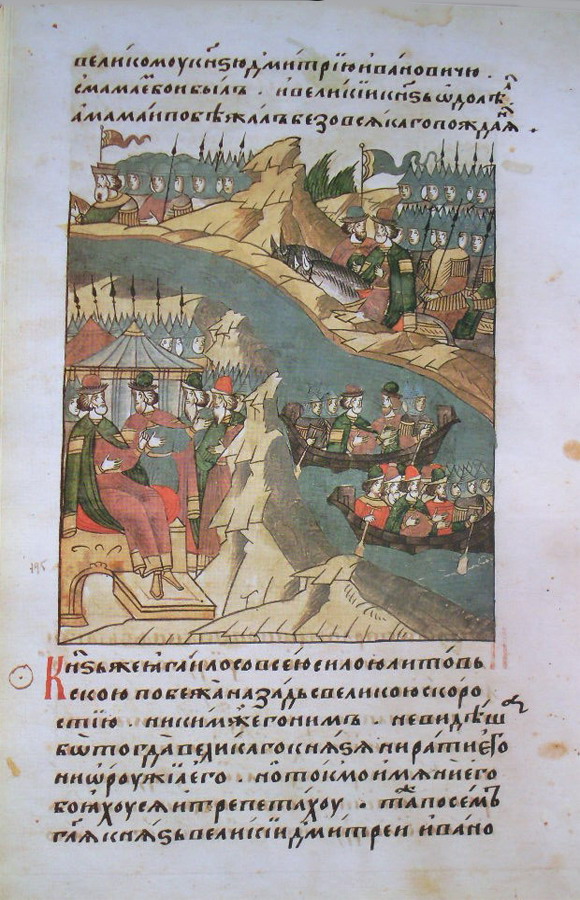 великомꙋ кнѧзю дмитрїю ивановичю .
с мамаем бои былъ . и великїи кнѧзь ѡдолѣ
а мамаи побѣжалъ безо всѧкаго пождаⷩ҇їѧ .
Кнѧзь же ꙗгаило со всею силою литовь
скою побежа назадь с великою скоро
стїю . ни ким же гонимъ . не видѣш
бѡ тогда великаго кнѧзѧ ни рати его
ни ѡрꙋжїа его . но токмо имѧни его
боѧхꙋсѧ и трепетахꙋ . та по семъ
глѧ кнѧзь великїи дмитреи ивано